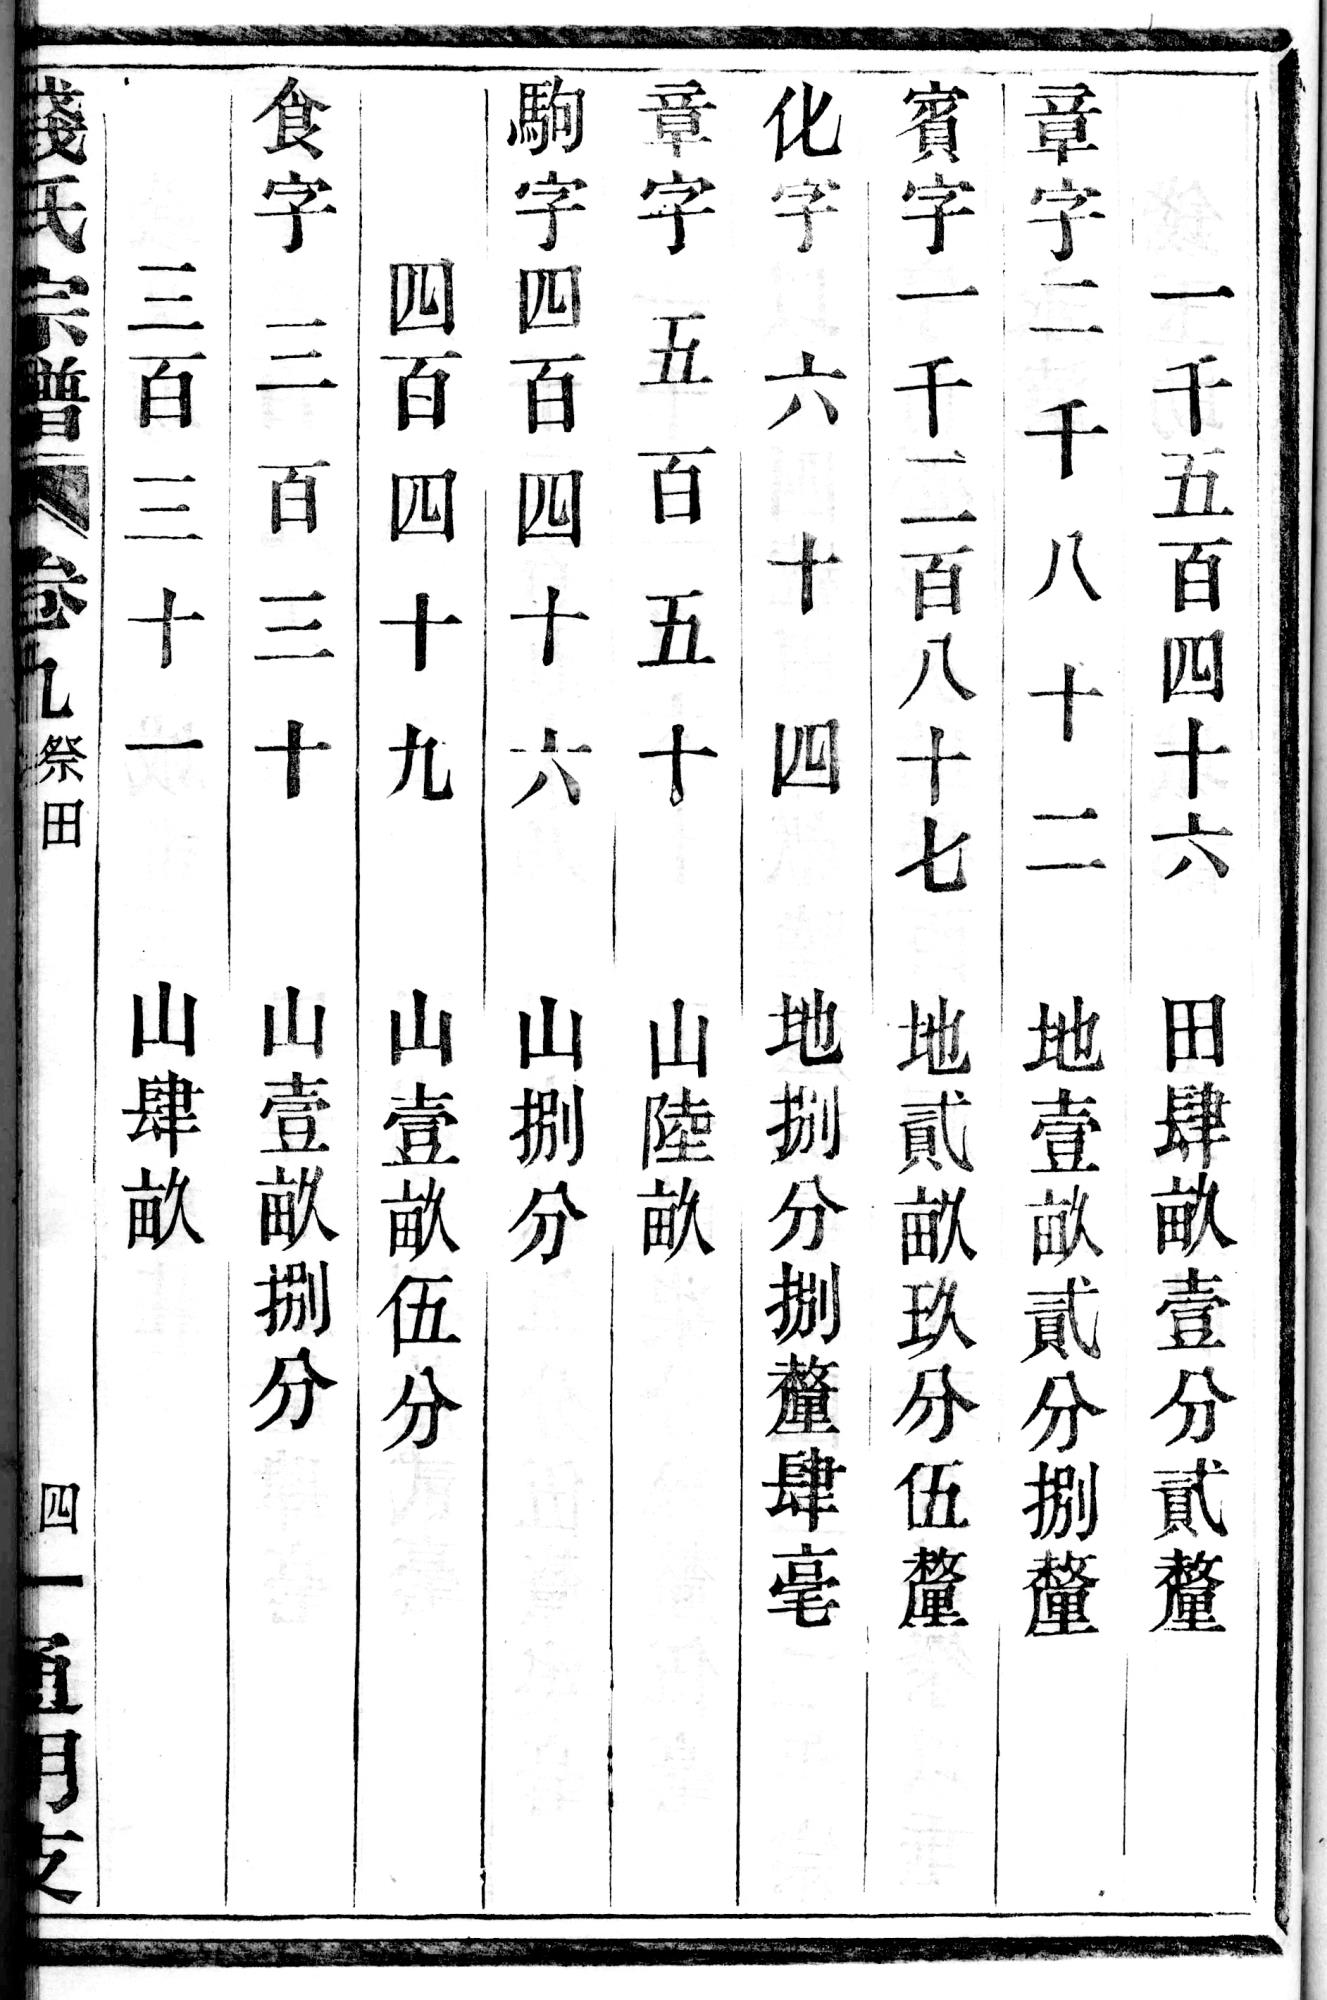 一千五百四十六　田肆畝壹分貳釐
章字二千八十二　地壹畝貳分捌釐
賓字一千二百八十七　地貳畝玖分伍釐
化字六十四　地捌分捌釐肆毫
章字五百五十　山陸畝
駒字四百四十六　山捌分
四百四十九　山壹畝伍分
食字三百三十　山壹畝捌分
三百三十一　山肆畝
錢氏宗譜　卷九　祭田　四一　通明支